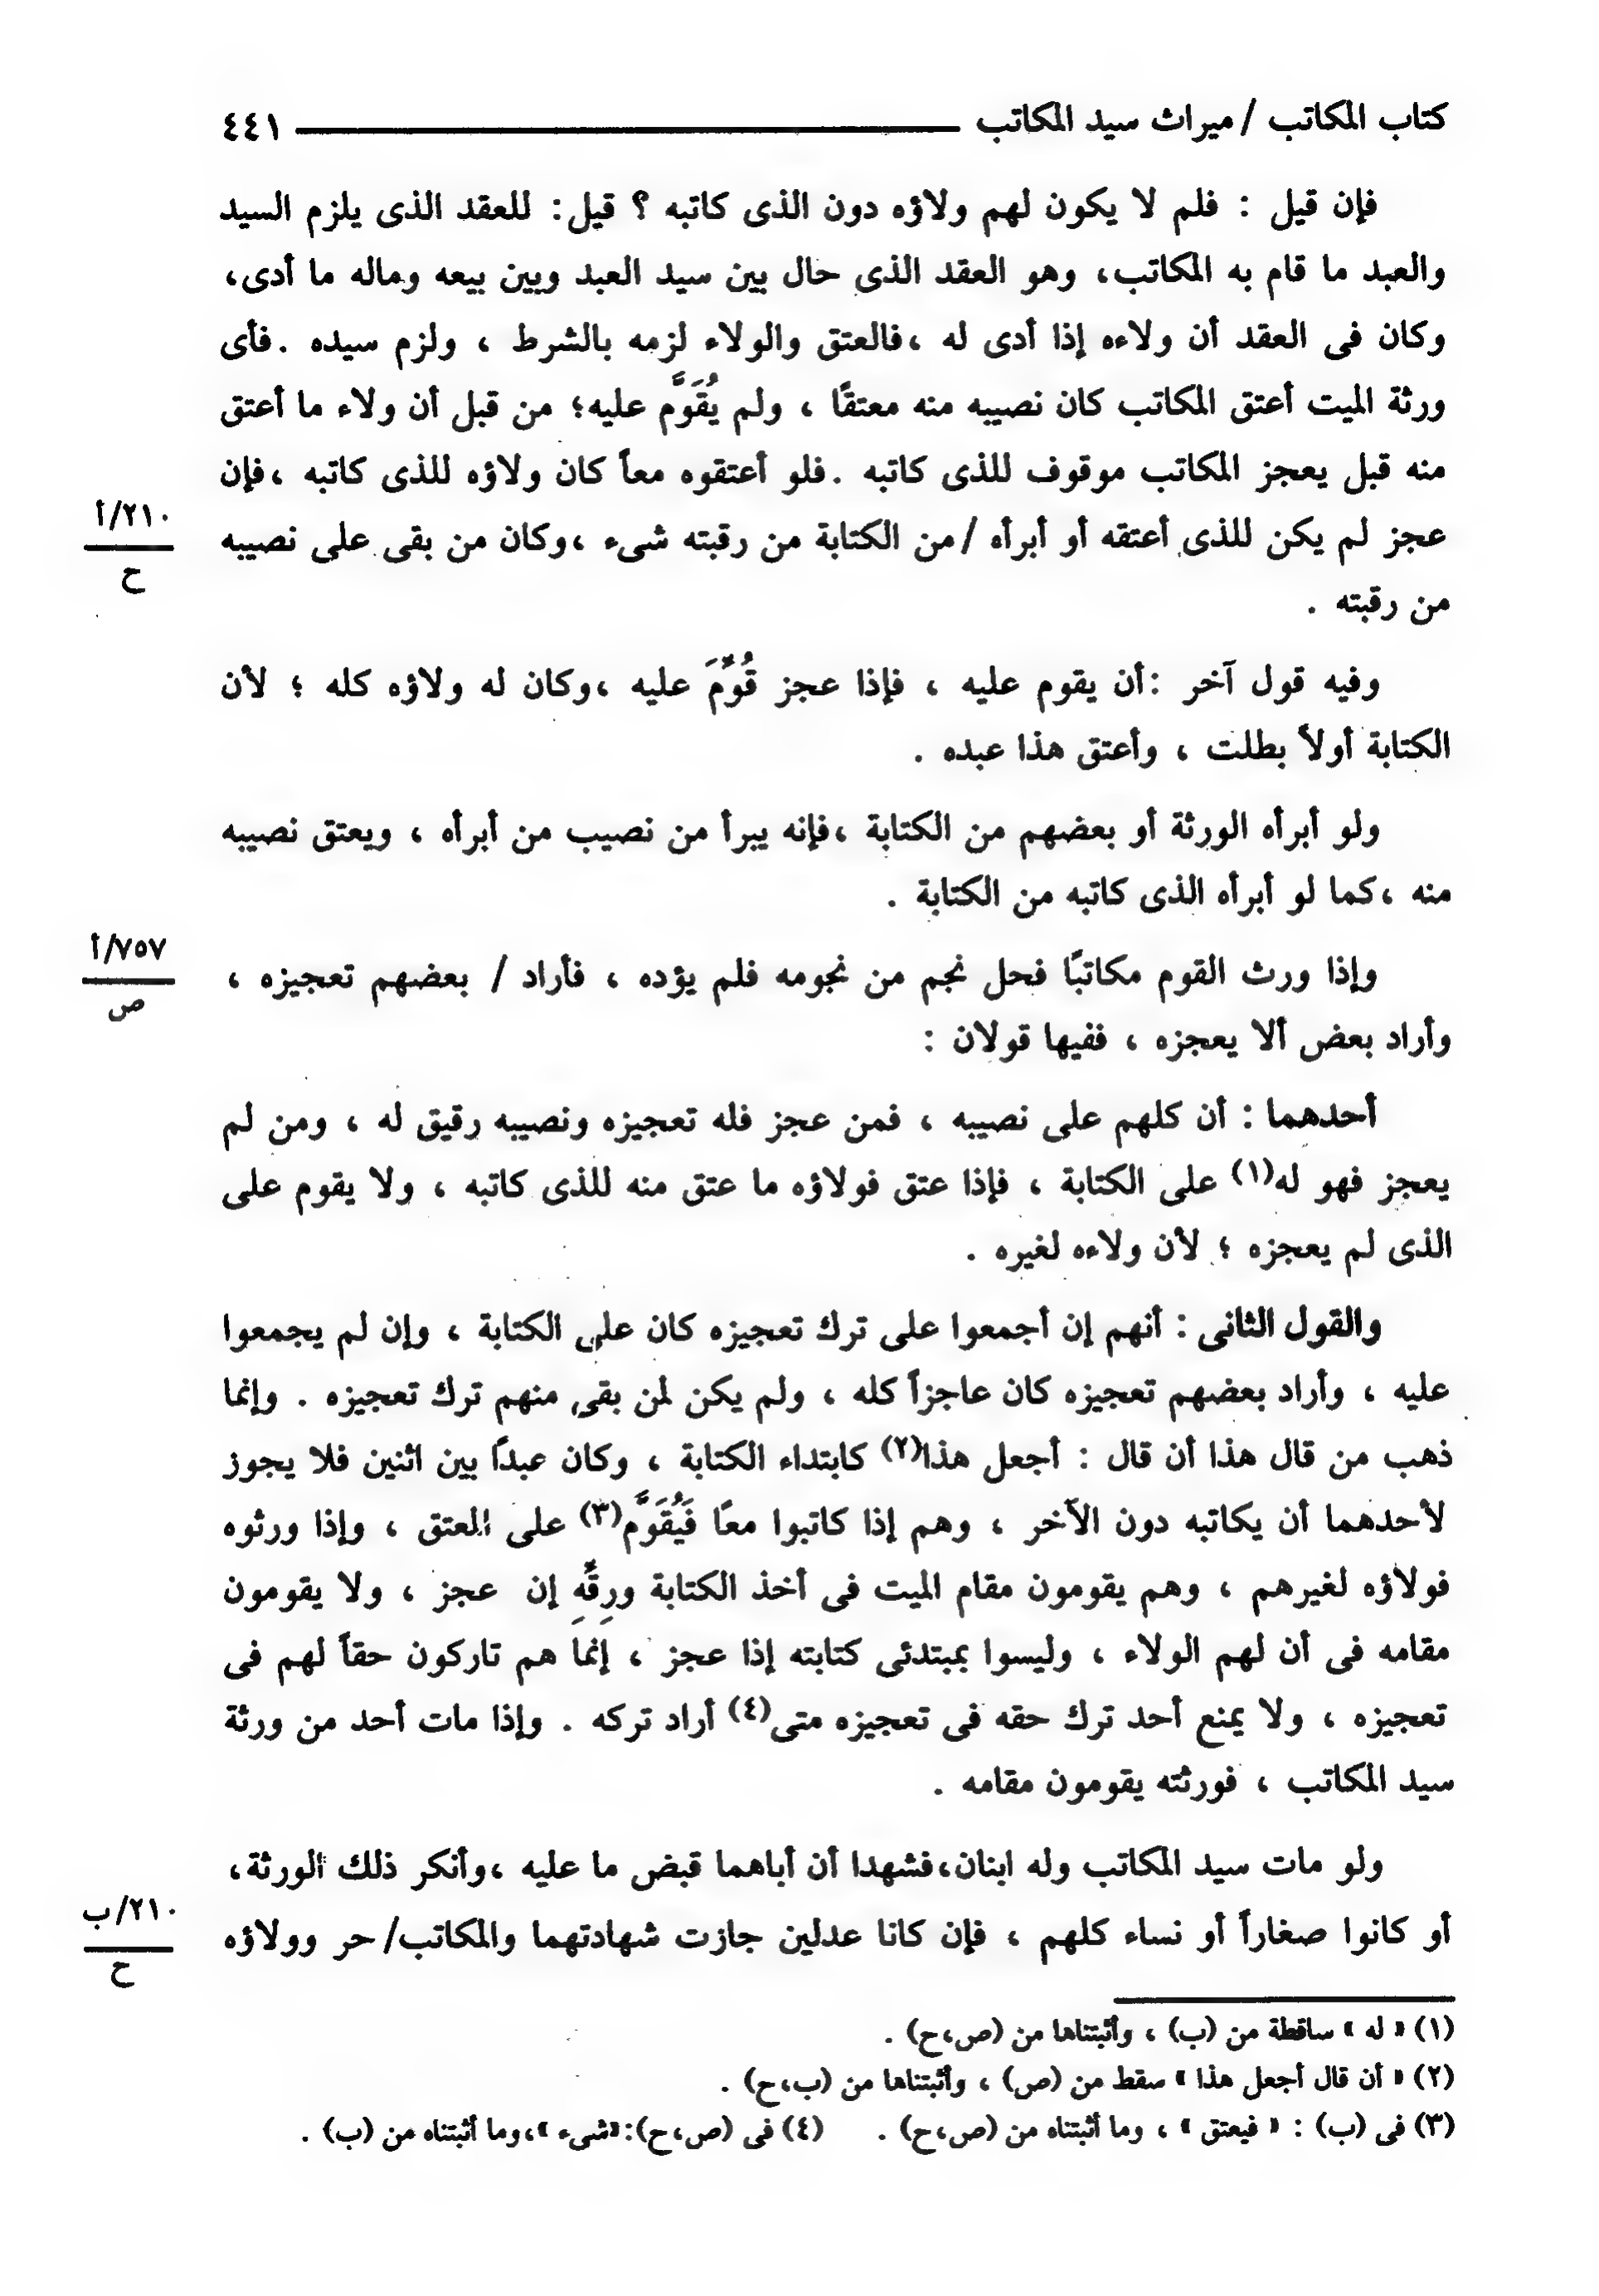 كتاب المكاتب / ميراث سيد المكاتب ٤٤١
فإن قيل : فلم لا يكون لهم ولاؤه دون الذى كاتبه ؟ قيل: للعقد الذى يلزم السيد
والعبد ما قام به المكاتب، وهو العقد الذى حال بين سيد العبد وبين بيعه وماله ما أدى،
وكان فى العقد أن ولاءه إذا أدى له ،فالعتق والولاء لزمه بالشرط ، ولزم سيده .فأى
ورثة الميت أعتق المكاتب كان نصيبه منه معتقًا ، ولم يُقَوَّم عليه؛ من قبل أن ولاء ما أعتق
منه قبل يعجز المكاتب موقوف للذى كاتبه .فلو أعتقوه معاً كان ولاؤه للذى كاتبه ،فإن
عجز لم يكن للذى أعتقه أو أبرأه /من الكتابة من رقبته شىء ،وكان من بقى على نصيبه
٢١٠/أ
ح
من رقبته .
وفيه قول آخر :أن يقوم عليه ، فإذا عجز قُوِّمَ عليه ،وكان له ولاؤه كله ؛ لأن
الكتابة أولاً بطلت ، وأعتق هذا عبده .
ولو أبرأه الورثة أو بعضهم من الكتابة ،فإنه يبرأ من نصيب من أبرأه ، ويعتق نصيبه
منه ،كما لو أبرأه الذى كاتبه من الكتابة .
وإذا ورث القوم مكاتبًا فحل نجم من نجومه فلم يؤده ، فأراد / بعضهم تعجيزه ،
٧٥٧/أ
ص
وأراد بعض ألا يعجزه ، ففيها قولان :
أحدهما : أن كلهم على نصيبه ، فمن عجز فله تعجيزه ونصيبه رقيق له ، ومن لم
يعجز فهو له(١) على الكتابة ، فإذا عتق فولاؤه ما عتق منه للذى كاتبه ، ولا يقوم على
الذى لم يعجزه ؛ لأن ولاءه لغيره .
والقول الثانى : أنهم إن أجمعوا على ترك تعجيزه كان على الكتابة ، وإن لم يجمعوا
عليه ، وأراد بعضهم تعجيزه كان عاجزاً كله ، ولم يكن لمن بقى منهم ترك تعجيزه . وإنما
ذهب من قال هذا أن قال : أجعل هذا(٢) كابتداء الكتابة ، وكان عبدًا بين اثنين فلا يجوز
لأحدهما أن يكاتبه دون الآخر ، وهم إذا كاتبوا معًا فَيُقَوَّم(٣) على المعتق ، وإذا ورثوه
فولاؤه لغيرهم ، وهم يقومون مقام الميت فى أخذ الكتابة ورِقِّهِ إن عجز ، ولا يقومون
مقامه فى أن لهم الولاء ، وليسوا بمبتدئى كتابته إذا عجز ، إنما هم تاركون حقاً لهم فى
تعجيزه ، ولا يمنع أحد ترك حقه فى تعجيزه متى(٤) أراد تركه . وإذا مات أحد من ورثة
سيد المكاتب ، فورثته يقومون مقامه .
ولو مات سيد المكاتب وله ابنان،فشهدا أن أباهما قبض ما عليه ،وأنكر ذلك الورثة،
أو كانوا صغاراً أو نساء كلهم ، فإن كانا عدلين جازت شهادتهما والمكاتب/ حر وولاؤه
٢١٠/ب
ح
(١) « له » ساقطة من (ب) ، وأثبتناها من (ص،ح) .
(٢) « أن قال أجعل هذا » سقط من (ص) ، وأثبتناها من (ب،ح) .
(٣) فى (ب) : « فيعتق » ، وما أثبتناه من (ص،ح) . (٤) فى (ص،ح):«شىء »،وما أثبتناه من (ب) .